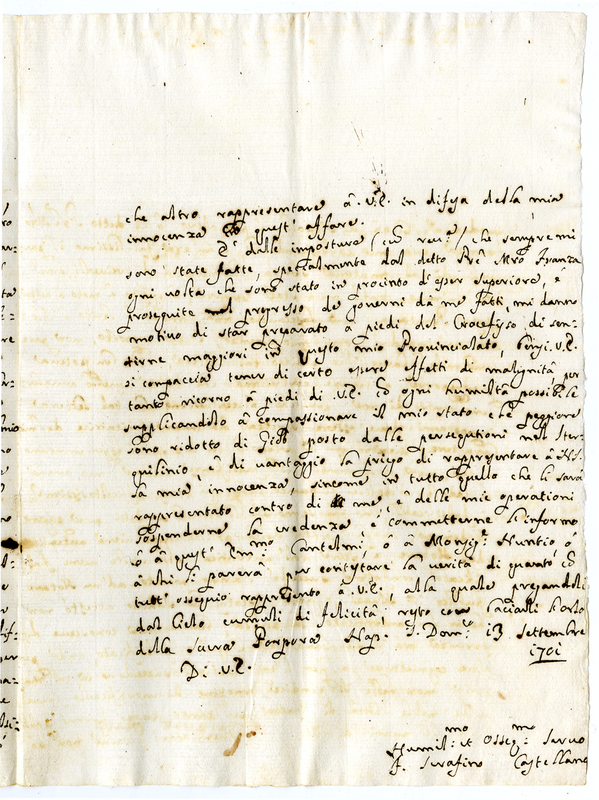 che altro rappresentare à V.E. in difesa della mia
innocenza in quest' affare.
E' dalle imposture (cū rev.ᵃ/ che sempre mi
sono state fatte, specialmente dal detto Prē Mrō Avanza
ogni volta che sono stato in procinto d'esser Superiore, è
proseguite nel progresso de governi dà me fatti, mi danno
motivo di star preparato à piedi del Crocefisso di sen-
tirne maggiori in questo mio Provincialato, V.E.
si compiaccia tener di certo esser effetti di malignità, per
tanto ricorro à piedi di V.E. cō ogni humiltà possibile
supplicandolo à compassionare il mio stato che peggiore
sono ridotto di Giob posto dalle persegutioni nel ster-
quilinio, è di vantaggio la priego di rappresentare à
la mia innocenza, sincome in tutto quello che li sarà
rappresentato contro di me, è delle mie operationi
sospenderne la credenza è commetterne l'informo
ò à quest' Em:ᵐᵒ Cantelmi, ò à Monsig.ʳ Nuntio, ò
à chi li parerà per contestare la verità di quanto cō
tutt' ossequio rappresento à V.E., alla quale pregandoli
dal Cielo cumuli di felicità, resto con baciarli l'orlo
della Sacra Porpora Nap. S. Dom.ᶜᵒ 13 Settembre
1701
Di V.E.
Humil:ᵐᵒ et Osseq:ᵐᵒ Servo
F. Serafino Castellana